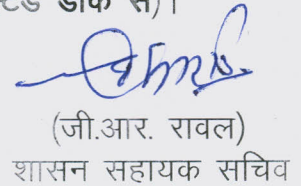 डाक से)।
(जी.आर. रावल)
शासन सहायक सचिव